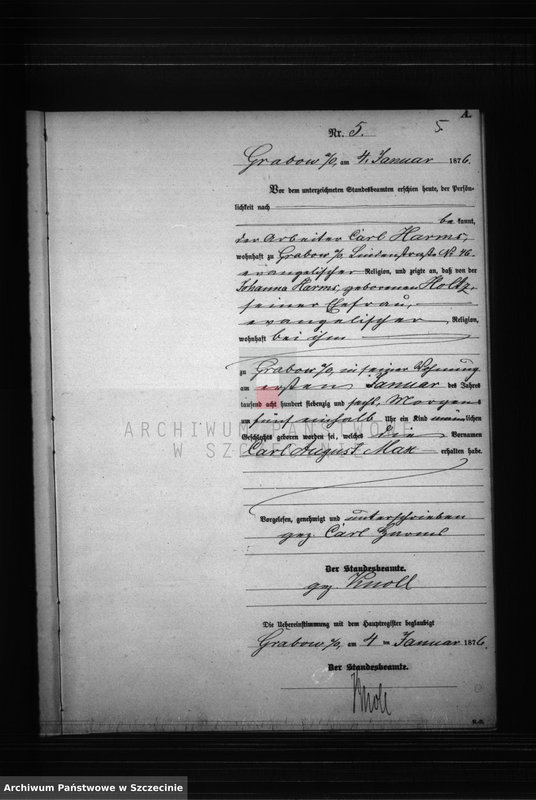 A.
Nr. 5.
5.
Grabow a/O, am 4. Januar 1876
Vor dem unterzeichneten Standesbeamten erschien heute, der Persön-
lichkeit nach
bekannt,
der Arbeiter Carl Harms,
wohnhaft zu Grabow a/O, Lindenstraße No 46.
evangelischer Religion, und zeigte an, daß von der
Johanna Harms, geborenen Holtz,
seiner Ehefrau,
evangelischer Religion,
wohnhaft bei ihm
zu Grabow a/O, in seiner Wohnung
am ersten Januar des Jahres
tausend acht hundert siebenzig und sechs, Morgens
um fünf einhalb Uhr ein Kind männlichen
Geschlechts geboren worden sei, welches die Vornamen
Carl August Max erhalten habe.
Vorgelesen, genehmigt und unterschrieben
gez. Carl Harms
Der Standesbeamte.
gez. Knoll
Die Uebereinstimmung mit dem Hauptregister beglaubigt
Grabow a/O, am 4ten Januar 1876.
Der Standesbeamte.
Knoll
ARCHIWUM PAŃSTWOWE
W SZCZECINIE
Archiwum Państwowe w Szczecinie